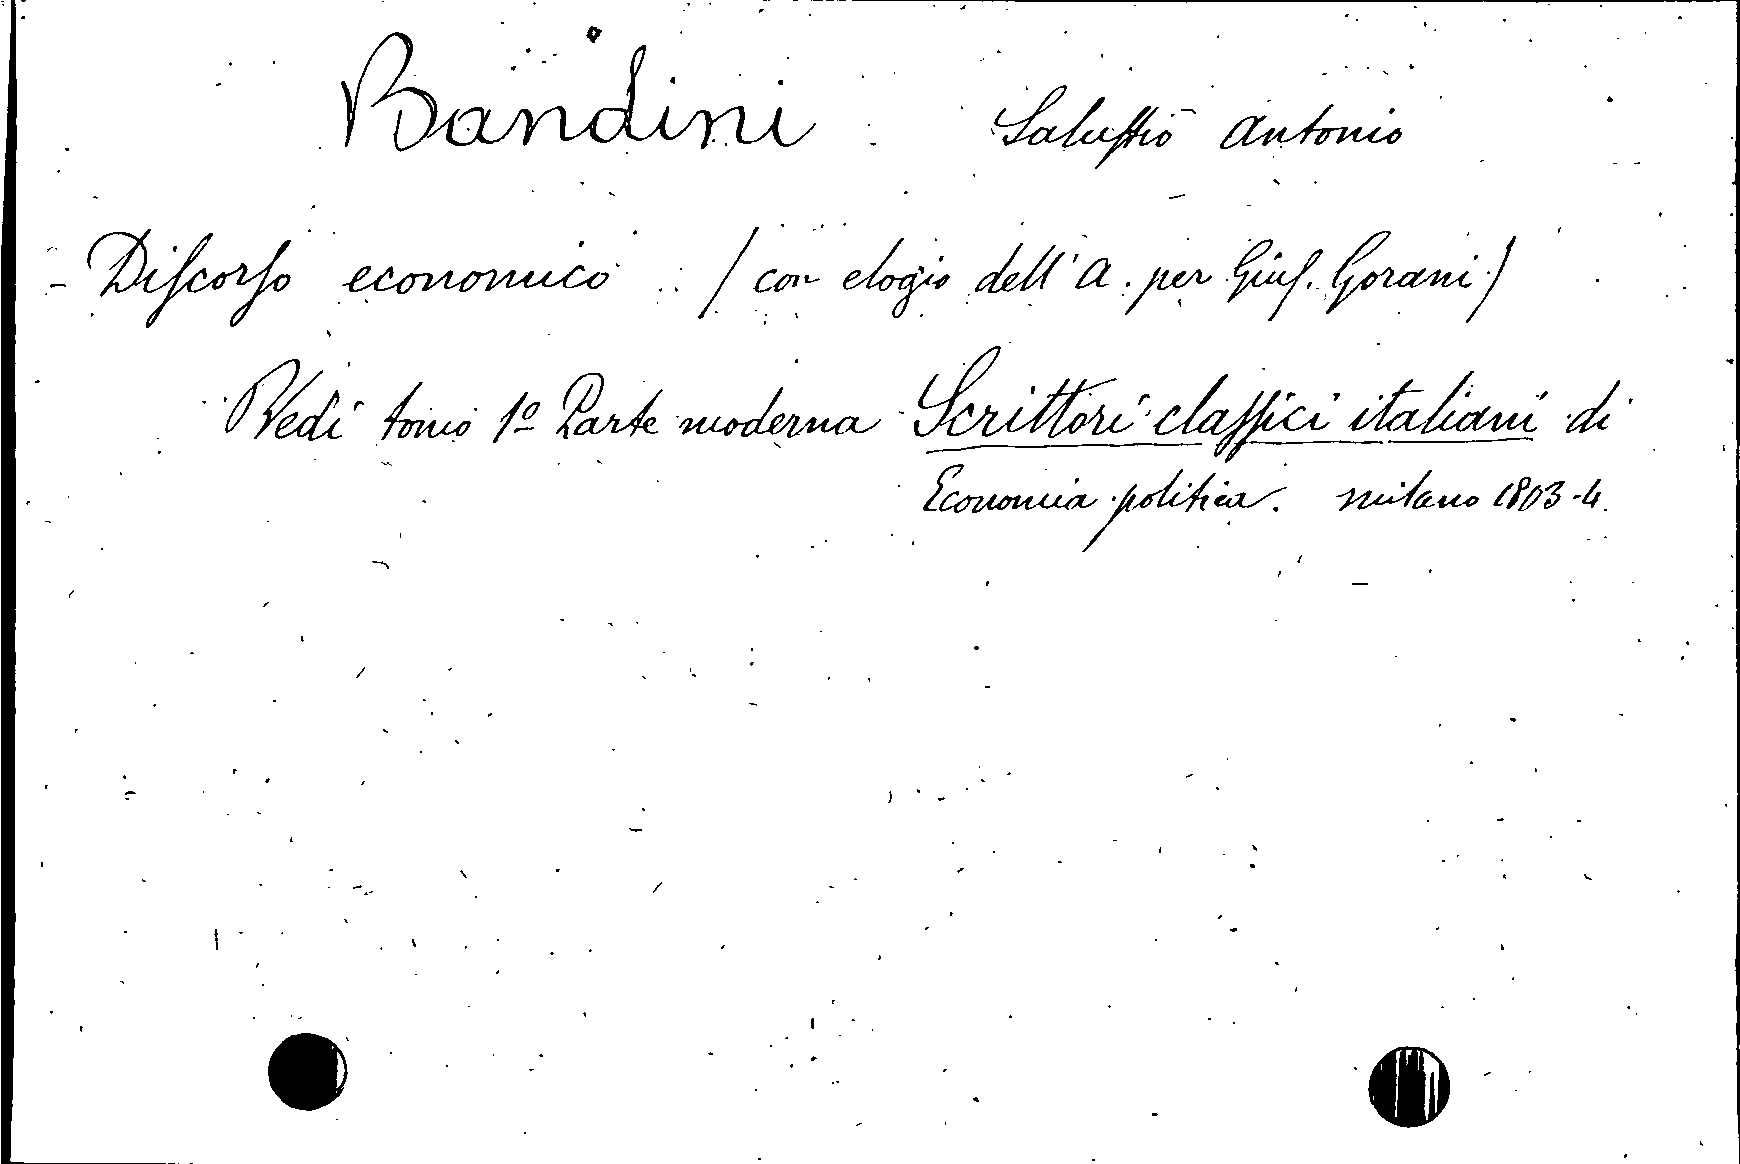 Bandini Salustio Antonio
- Discorso economico (con elogio dell'A. per Gius. Gorani)
Vedi tomo 1º Parte moderna Scrittori classici italiani di
Economia politica. Milano 1803-4.